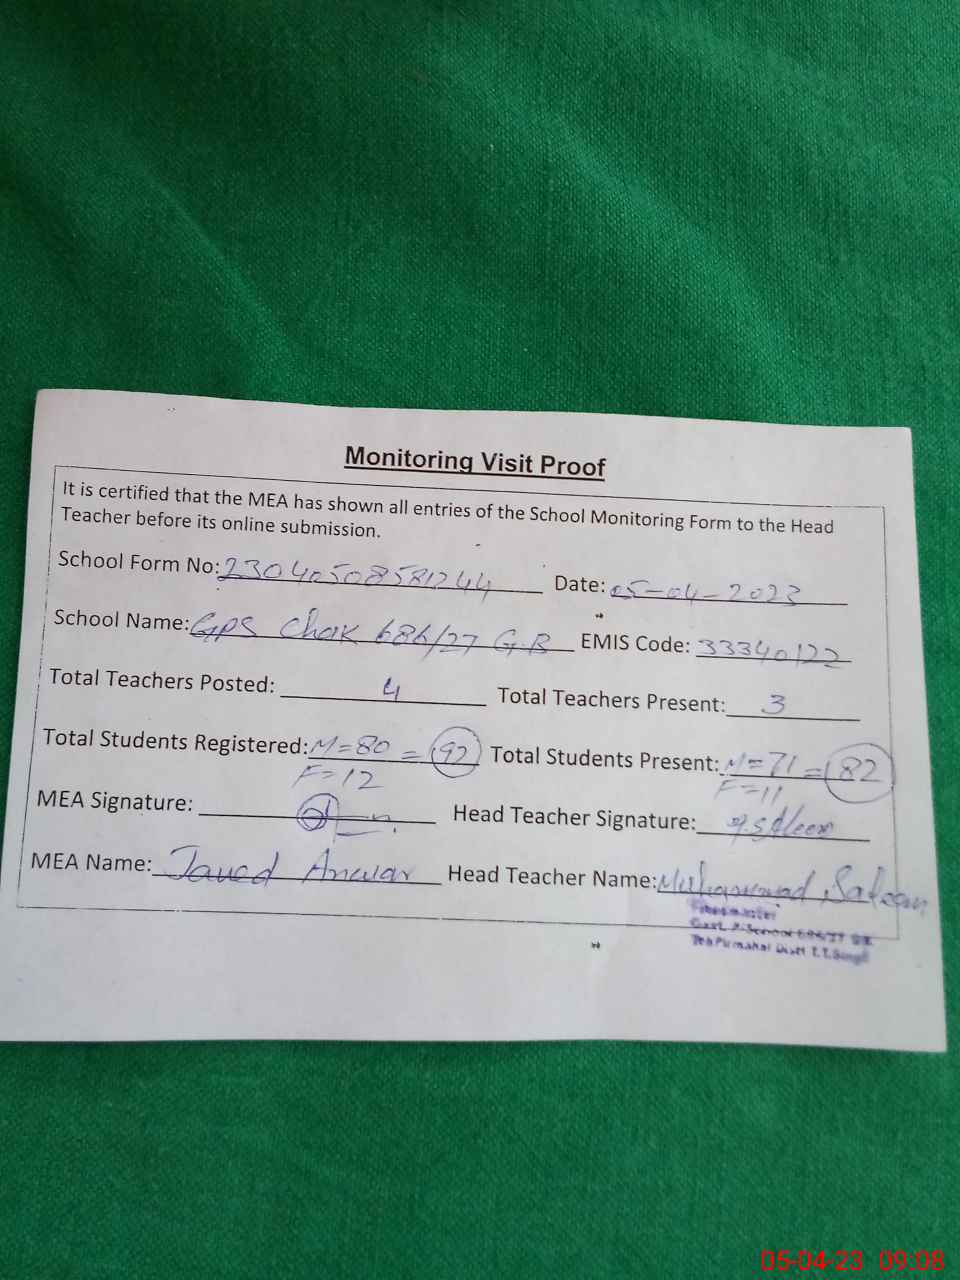 Monitoring Visit Proof
It is certified that the MEA has shown all entries of the School Monitoring Form to the Head
Teacher before its online submission.
School Form No: 23040508581244 Date: 05-04-2023
School Name: GPS Chak 686/27 G.B EMIS Code: 33340122
Total Teachers Posted: 4 Total Teachers Present: 3
Total Students Registered: M=80 = 92 Total Students Present: M=71 = 82
F=12 F=11
MEA Signature: Head Teacher Signature:
MEA Name: Javed Anwar Head Teacher Name: Muhammad Saleem
Headmaster
Govt. P. School 686/27 GB
Teh Pirmahal Distt T.T.Singh
05-04-23 09:08